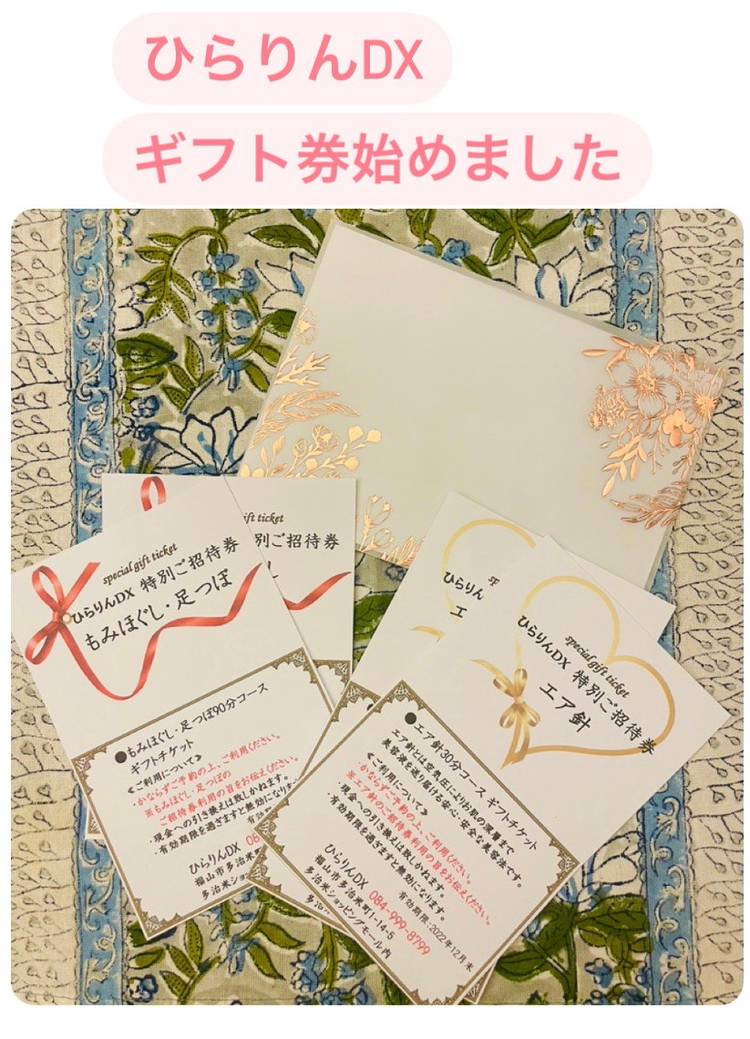 ひらりんDX
ギフト券始めました
special gift ticket
ひらりんDX 特別ご招待券
もみほぐし・足つぼ
●もみほぐし・足つぼ90分コース
ギフトチケット
《ご利用について》
・かならずご予約の上、ご利用ください。
※もみほぐし・足つぼの
ご招待券利用の旨をお伝えください。
・現金への引き換えは致しかねます。
・有効期限を過ぎますと無効になります
ひらりんDX 08
福山市多治米
多治米ショッピ
ift ticket
別ご招待券
special
ひらりん
エ
special gift ticket
ひらりんDX 特別ご招待券
エア針
●エア針30分コース ギフトチケット
エア針とは空気圧によりお肌の深層まで
美容液を送り届ける安心・安全な美容法です。
《ご利用について》
・かならずご予約の上、ご利用ください。
※エア針のご招待券利用の旨をお伝えください。
・現金への引き換えは致しかねます
・有効期限を過ぎますと無効になります。
有効期限：2022年12月末
ひらりんDX 084-999-8799
福山市多治米町1-14-5
多治米ショッピングモール内